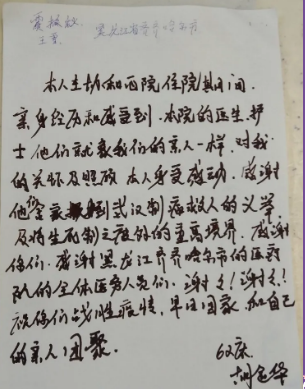 本人在协和西院住院期间,
亲身经历和感受到,本院的医生护
士他们就象我们的亲人一样,对我
的关怀及照顾本人身受感动,感谢
他们 救人的义举
及将生死 之度外的崇高境界,感谢
你们,感谢黑龙江齐齐哈尔市的医疗
队的全体医务人员们,谢谢!谢谢!
祝你们战胜疫情,早日回家和自己
的亲人团聚。
62床
胡金华